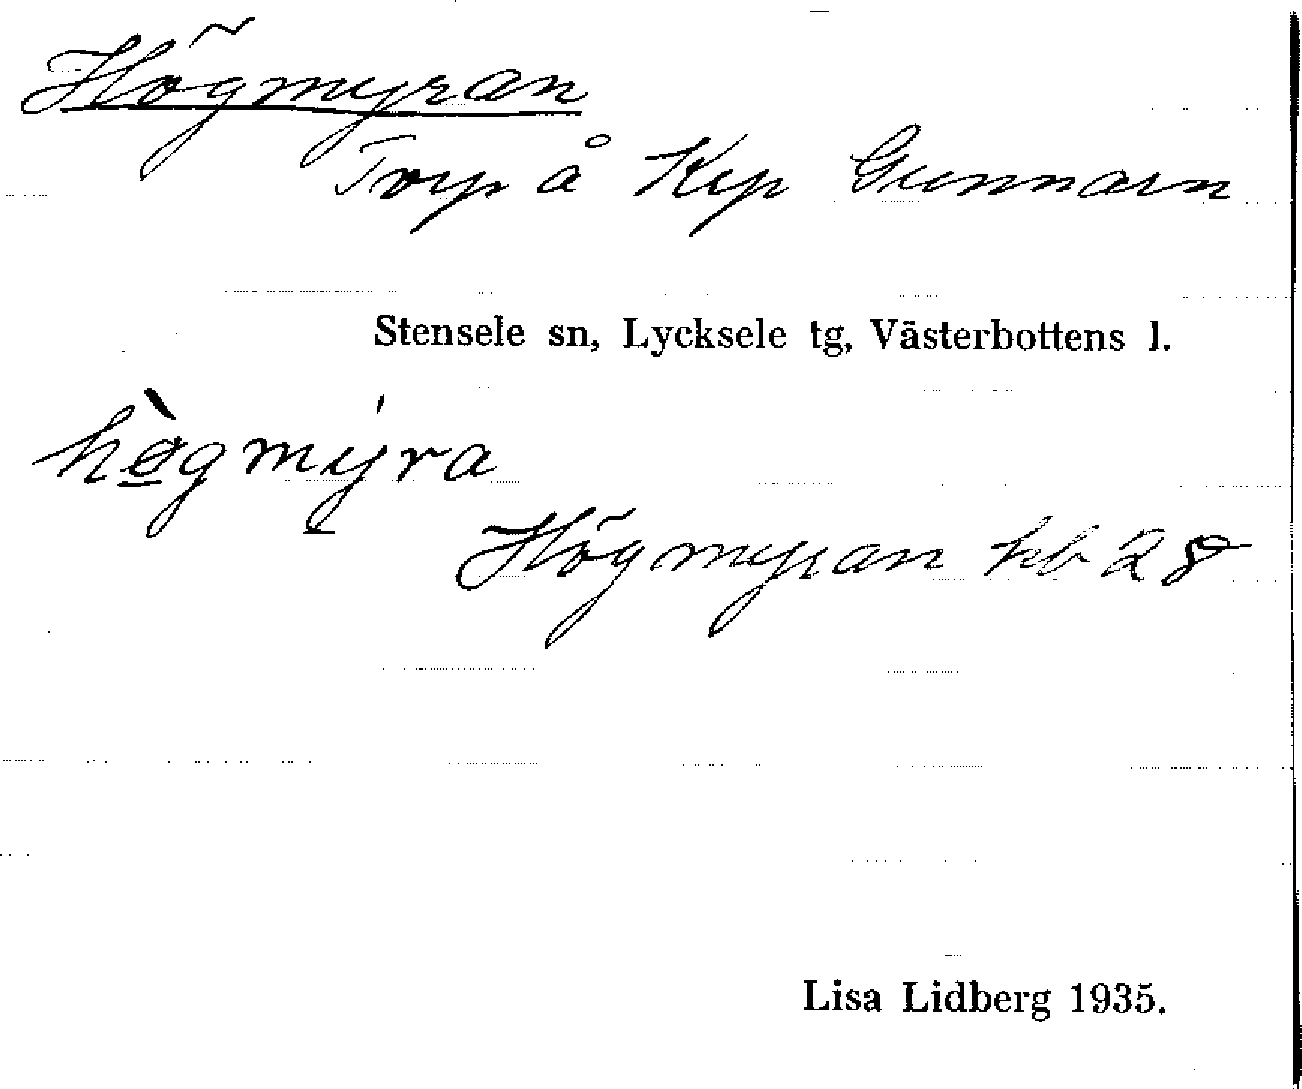 Högmyran
Torp å Krp Gunnarn
Stensele sn, Lycksele tg, Västerbottens l.
hø̲̀gmý̲ra
Högmyran kb 28
Lisa Lidberg 1935.